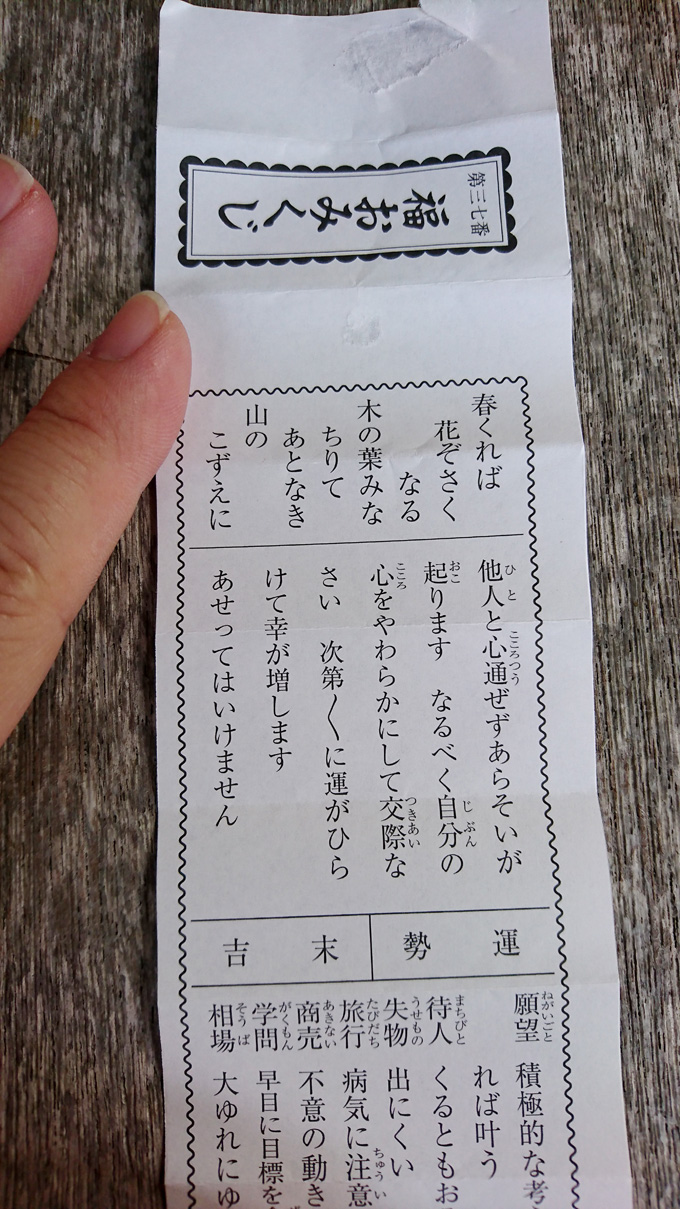 第三七番
福おみくじ
春くれば
花ぞさく
なる
木の葉みな
ちりて
あとなき
山の
こずえに
他人と心通ぜずあらそいが
起ります なるべく自分の
心をやわらかにして交際な
さい 次第〳〵に運がひら
けて幸が増します
あせってはいけません
運勢
末吉
願望 積極的な考
れば叶う
待人 くるともお
失物 出にくい
旅行 病気に注意
商売 不意の動き
学問 早目に目標を
相場 大ゆれにゆ